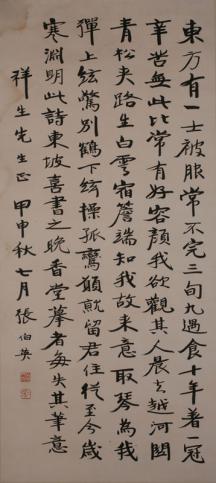 東方有一士被服常不完三旬九遇食十年著一冠
辛苦無此比常有好容顏我欲觀其人晨去越河關
青松夾路生白雲宿簷端知我故來意取琴為我
彈上絃驚別鶴下絃操孤鸞願就留君住從至今歲
寒淵明此詩東坡喜書之晚香堂摹者每失其筆意
祥生先生正 甲申秋七月張伯英